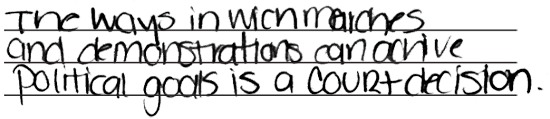 The ways in wich marches
and demonstrations can achive
political goals is a court decision.